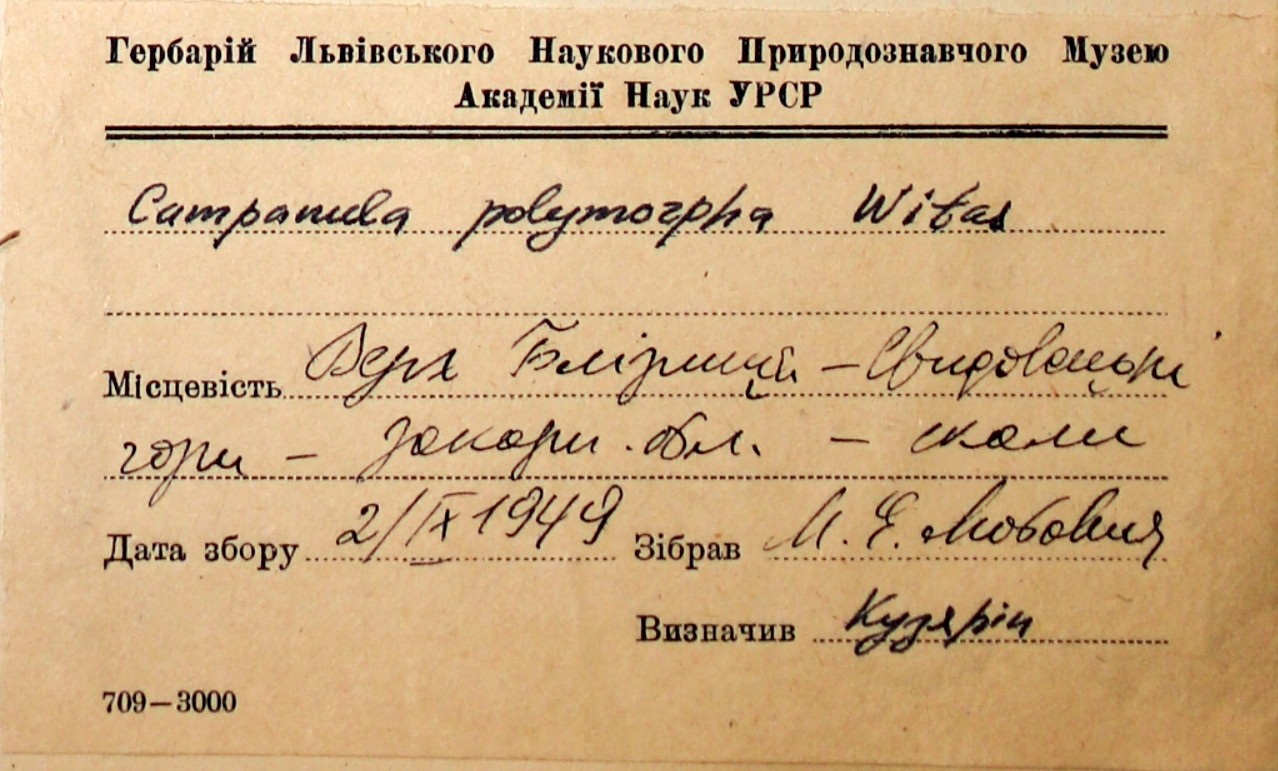 Гербарій Львівського Наукового Природознавчого Музею
Академії Наук УРСР
Campanula polymorpha Witas
Місцевість Верх Блізниці – Свидовецькі
гори – закарп. обл. – скали
Дата збору 2/IX 1949 Зібрав
Визначив Кузярін
709—3000